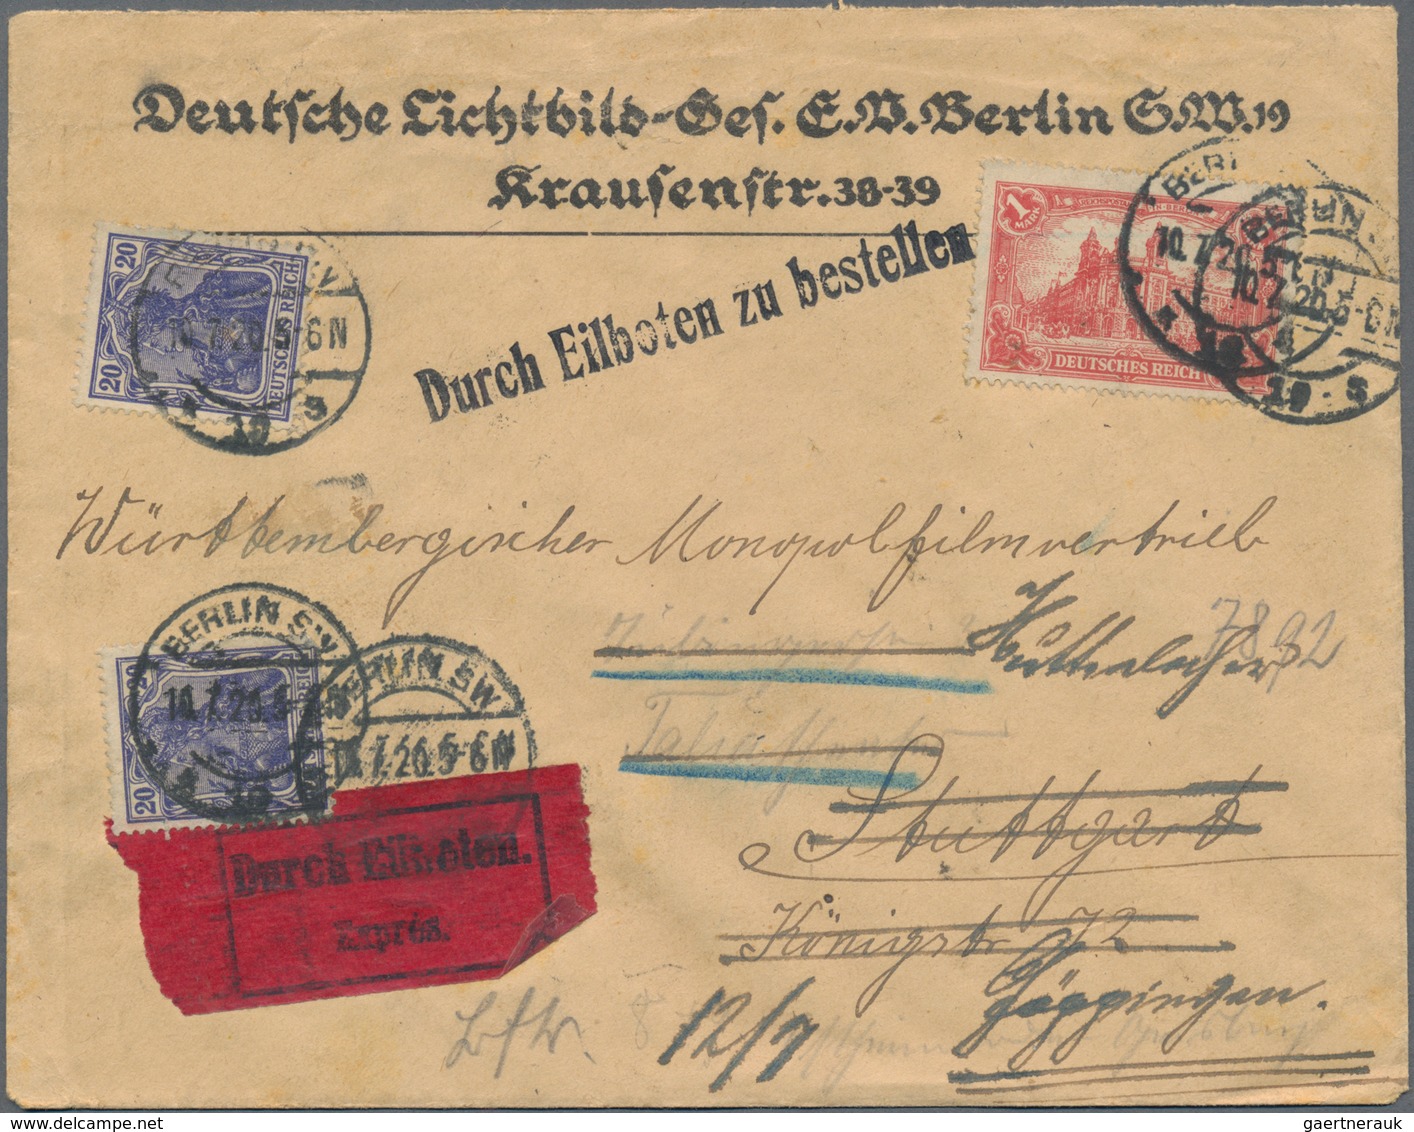 Deutsche Lichtbild-Ges. E.V. Berlin S.W.19
Krausenstr. 38-39
Durch Eilboten zu bestellen
20 20
DEUTSCHES REICH
10.7.20.5-6N
* 19 s
1 MARK
DEUTSCHES REICH
BERLIN
10.7.20.5-6N
19 s
Württembergischer Monopolfilmvertrieb
7892
Stuttgart
Königstr 72
Göppingen.
BERLIN SW
10.7.20.5-6N
* 19
BERLIN SW
10.7.20.5-6N
20
Durch Eilboten.
Exprès.
12/7
gaertnerauk